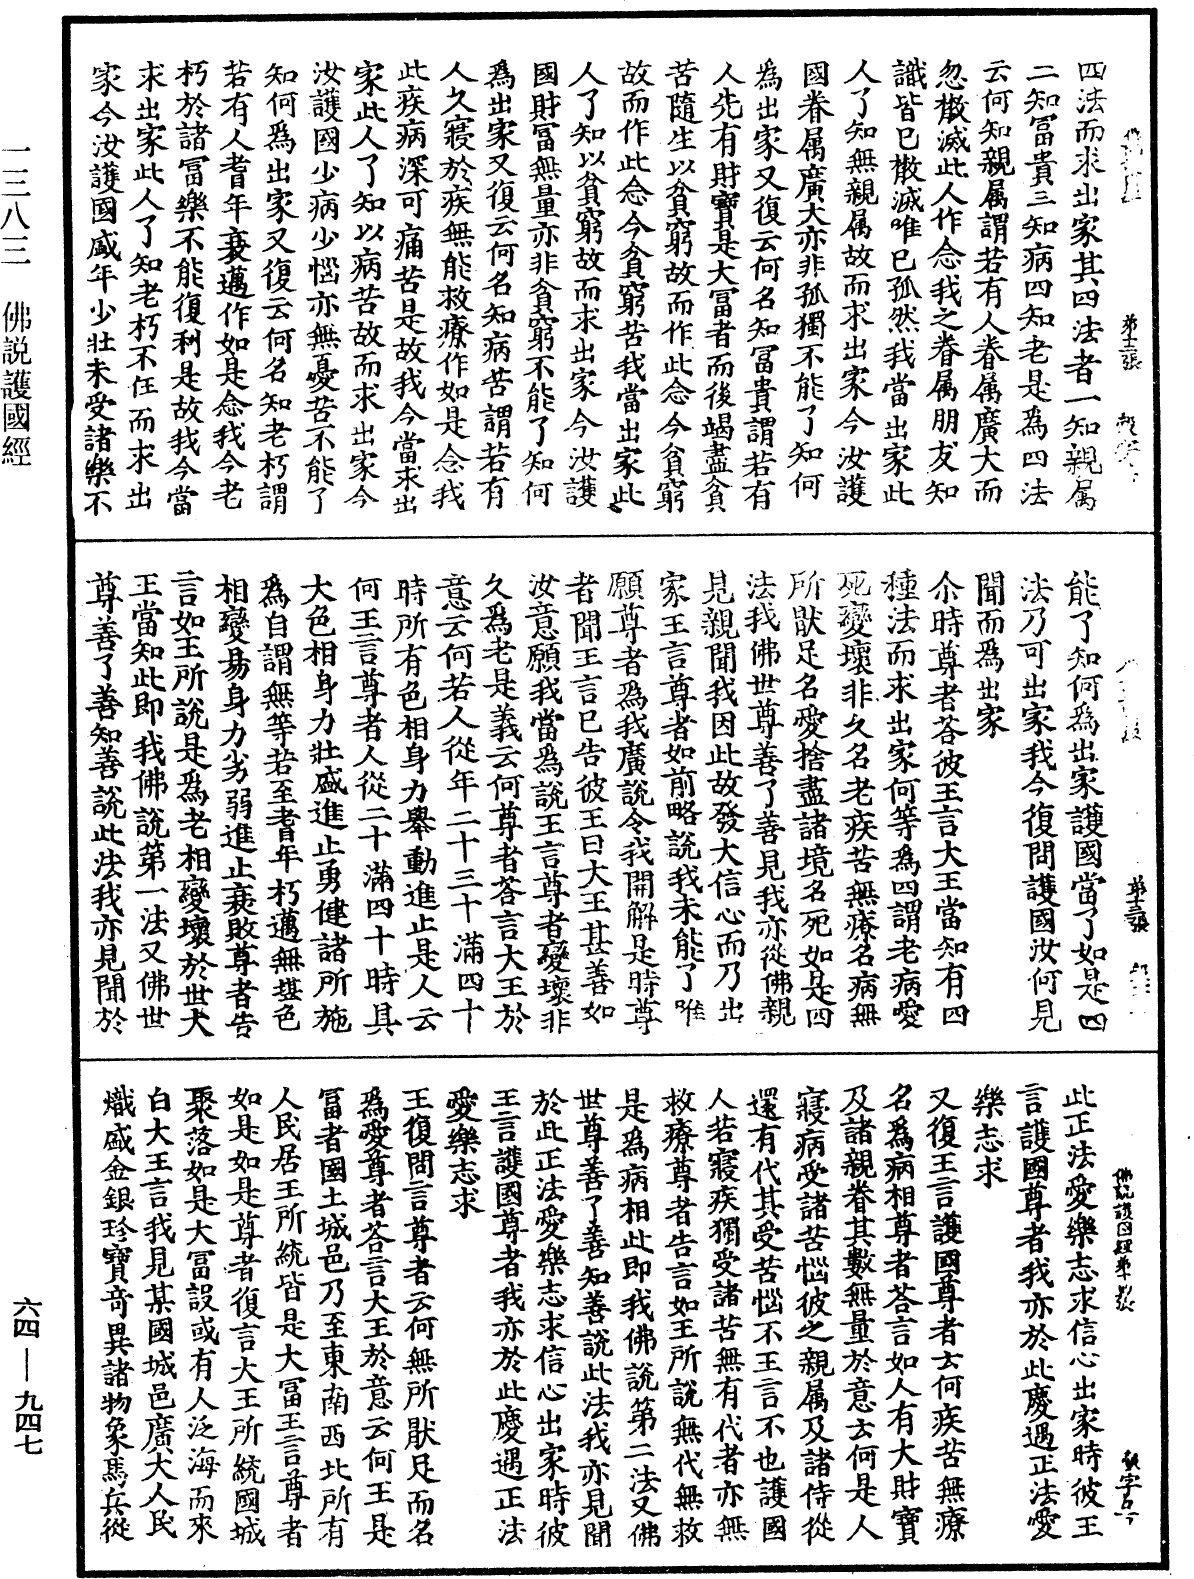 四法而求出家其四法者一知親属
二知冨貴三知病四知老是為四法
云何知親属謂若有人眷属廣大而
忽散滅此人作念我之眷属朋友知
識皆已散滅唯己孤然我當出家此
人了知無親属故而求出家今汝護
國眷属廣大亦非孤獨不能了知何
為出家又復云何名知冨貴謂若有
人先有財寶是大冨者而後竭盡貧
苦隨生以貧窮故而作此念今貧窮
故而作此念今貧窮苦我當出家此
人了知以貧窮故而求出家今汝護
國財冨無量亦非貧窮不能了知何
爲出家又復云何名知病苦謂若有
人久寢於疾無能救療作如是念我
此疾病深可痛苦是故我今當求出
家此人了知以病苦故而求出家今
汝護國少病少惱亦無憂苦不能了
知何爲出家又復云何名知老朽謂
若有人耆年衰邁作如是念我今老
朽於諸冨樂不能復利是故我今當
求出家此人了知老朽不任而求出
家今汝護國盛年少壯未受諸樂不
能了知何爲出家護國當了如是四
法乃可出家我今復問護國汝何見
聞而為出家
尒時尊者荅彼王言大王當知有四
種法而求出家何等為四謂老病愛
死變壞非久名老疾苦無療名病無
所猒足名愛捨盡諸境名死如是四
法我佛世尊善了善見我亦從佛親
見親聞我因此故發大信心而乃出
家王言尊者如前略說我未能了唯
願尊者為我廣說令我開解是時尊
者聞王言已告彼王曰大王甚善如
汝意願我當為說王言尊者變壞非
久爲老是義云何尊者荅言大王於
意云何若人從年二十三十滿四十
時所有色相身力舉動進止是人云
何王言尊者人從二十滿四十時具
大色相身力壯盛進止勇健諸所施
為自謂無等若至耆年朽邁無堪色
相變易身力劣弱進止衰敗尊者告
言如王所說是爲老相變壞於世大
王當知此即我佛說第一法又佛世
尊善了善知善說此法我亦見聞於
此正法愛樂志求信心出家時彼王
言護國尊者我亦於此慶遇正法愛
樂志求
又復王言護國尊者云何疾苦無療
名爲病相尊者荅言如人有大財寶
及諸親眷其數無量於意云何是人
寢病受諸苦惱彼之親属及諸侍從
還有代其受苦惱不王言不也護國
人若寢疾獨受諸苦無有代者亦無
救療尊者告言如王所說無代無救
是爲病相此即我佛說第二法又佛
世尊善了善知善說此法我亦見聞
於此正法愛樂志求信心出家時彼
王言護國尊者我亦於此慶遇正法
愛樂志求
王復問言尊者云何無所猒足而名
爲愛尊者荅言大王於意云何王是
冨者國土城邑乃至東南西北所有
人民居王所統皆是大冨王言尊者
如是如是尊者復言大王所統國城
聚落如是大冨設或有人泛海而來
白大王言我見某國城邑廣大人民
熾盛金銀珍寶竒異諸物象馬兵從
佛說護国經第十張
第十二張
第十三張
一三八三 佛説護國經
六四—九四七